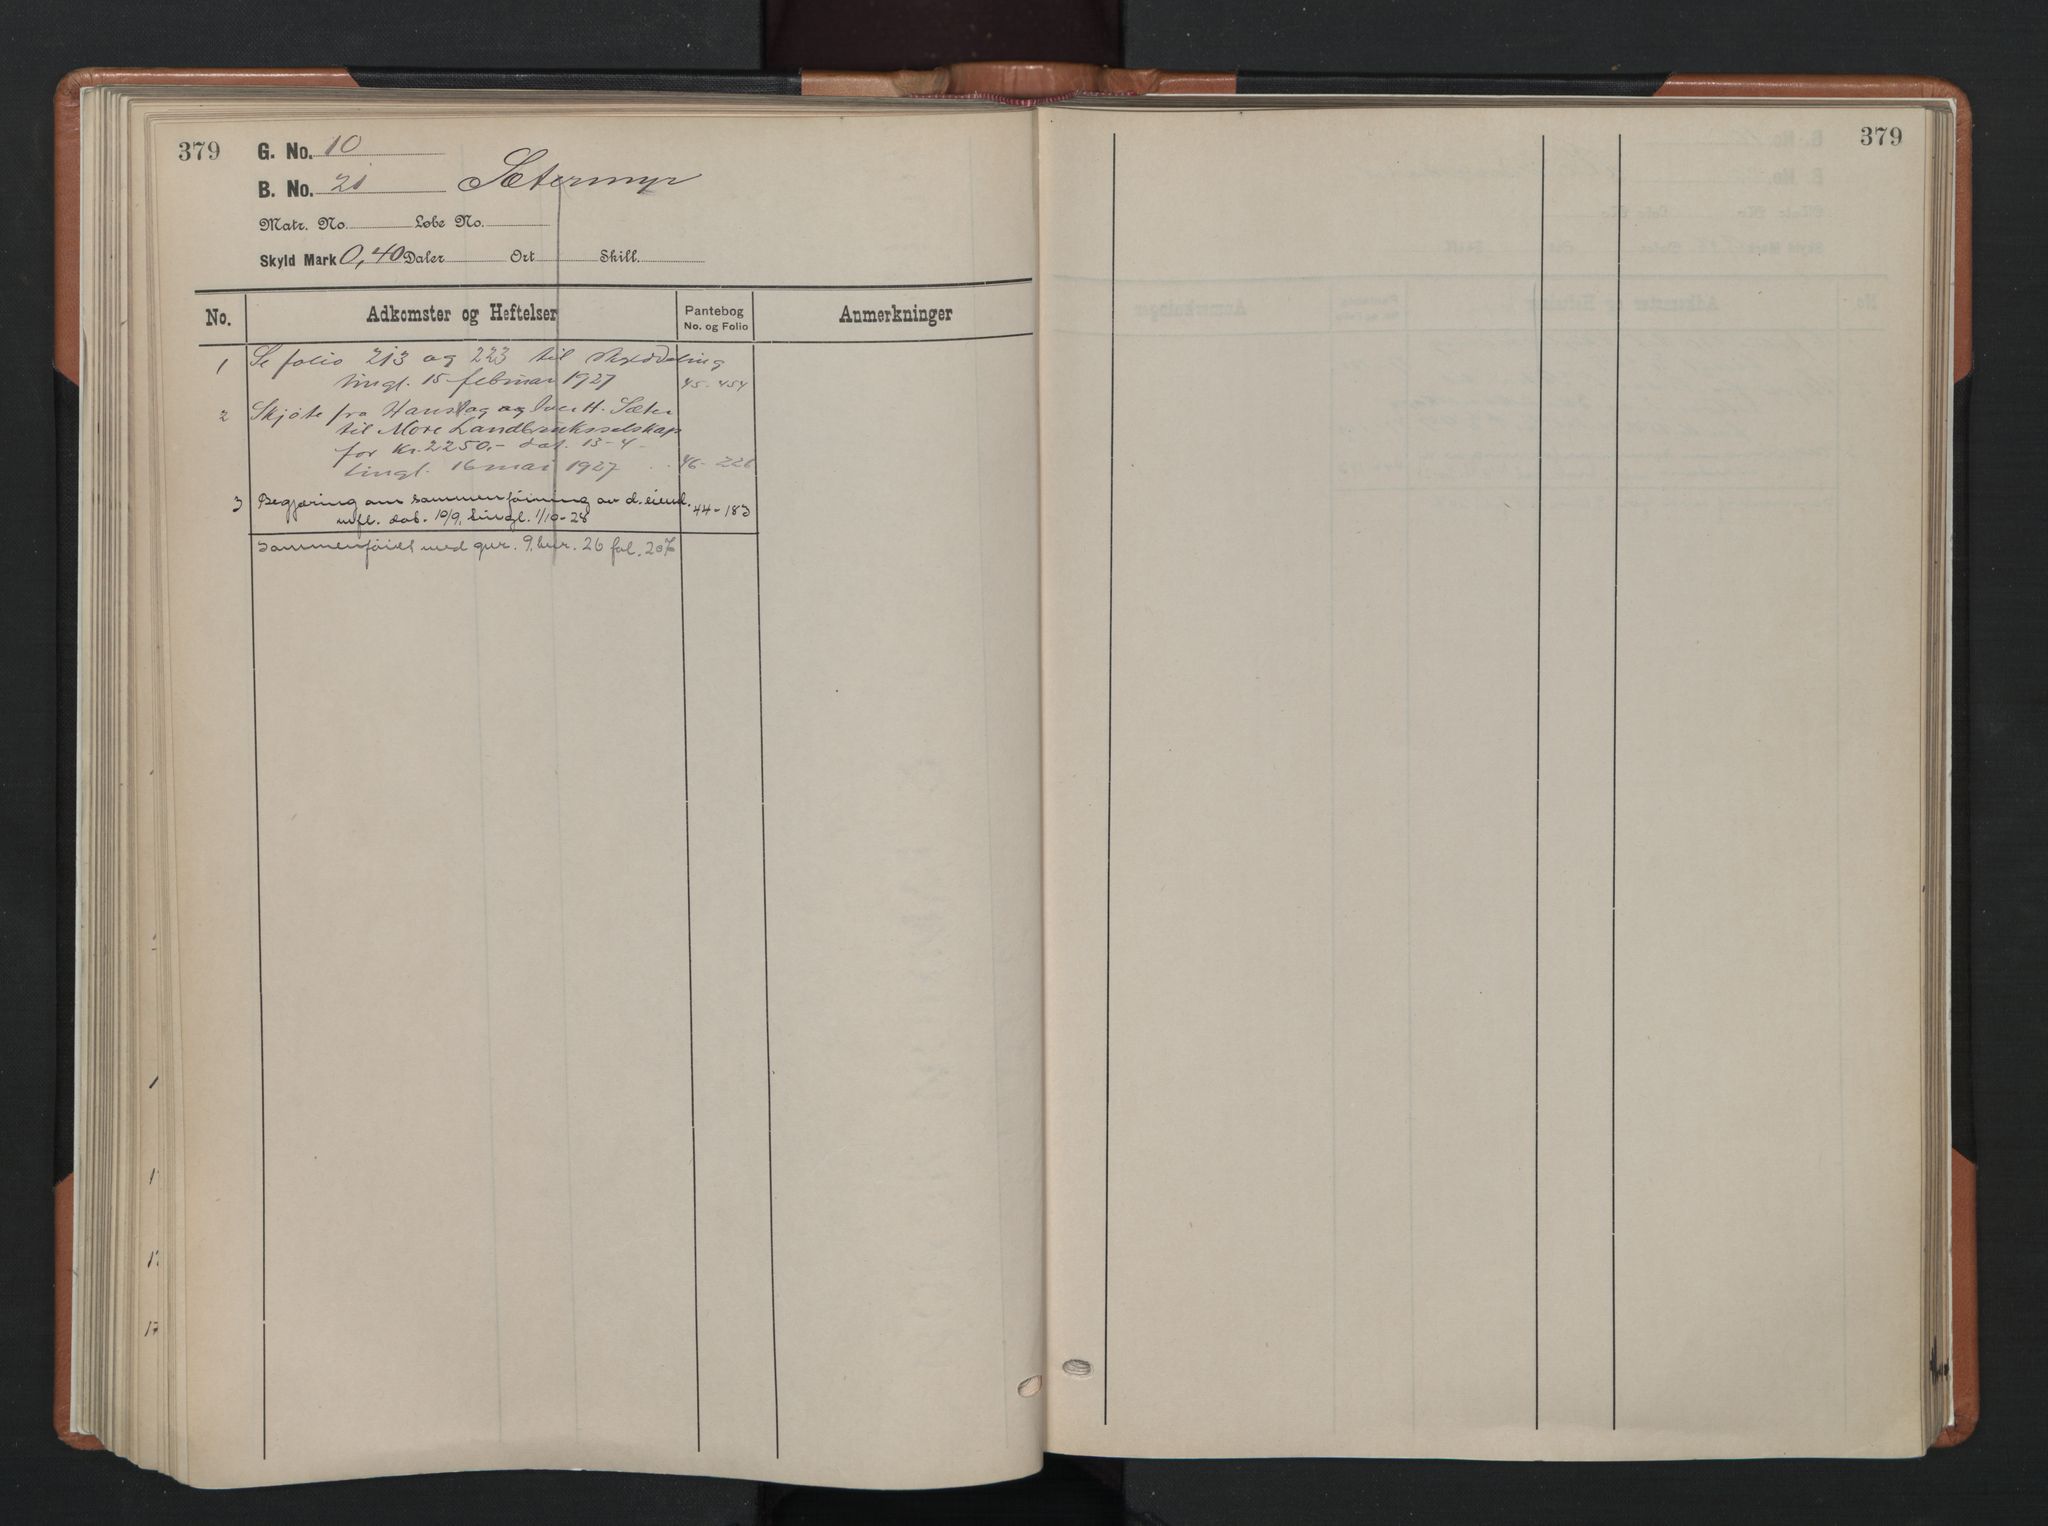 379
G. No. 10
B. No. 21 Sætermyr
Matr. No. Løbe No.
Skyld Mark 0,40 Daler Ort Skill.
No. Adkomster og Heftelser Pantebog No. og Folio Anmerkninger
1 Se folio 213 og 223 til skylddeling
tingl. 15 februar 1927 45-454
2 Skjøte fra Hans og Iver H. Sæter
til Møre Landbruksselskap
for kr. 2250,- dat. 13-4-
tingl. 16 mai 1927 46-226
3 Begjæring om sammenføining av d. eiend.
mfl. dat. 10/9, tingl. 1/10-28 44-183
Sammenføiet med gnr. 9, bnr. 26 fol. 207
379